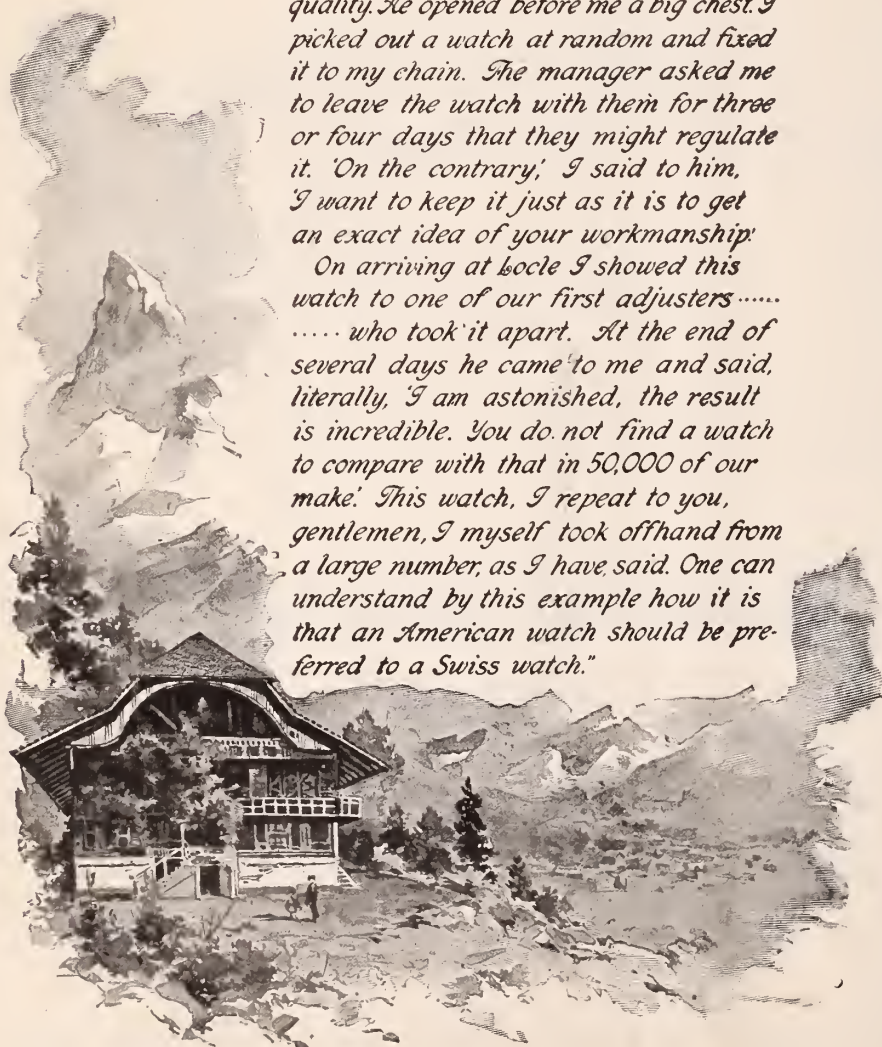 quality. He opened before me a big chest. I
picked out a watch at random and fixed
it to my chain. The manager asked me
to leave the watch with them for three
or four days that they might regulate
it. 'On the contrary,' I said to him,
'I want to keep it just as it is to get
an exact idea of your workmanship.'
On arriving at Locle I showed this
watch to one of our first adjusters ......
..... who took it apart. At the end of
several days he came to me and said,
literally, 'I am astonished, the result
is incredible. You do not find a watch
to compare with that in 50,000 of our
make.' This watch, I repeat to you,
gentlemen, I myself took offhand from
a large number, as I have said. One can
understand by this example how it is
that an American watch should be pre-
ferred to a Swiss watch."